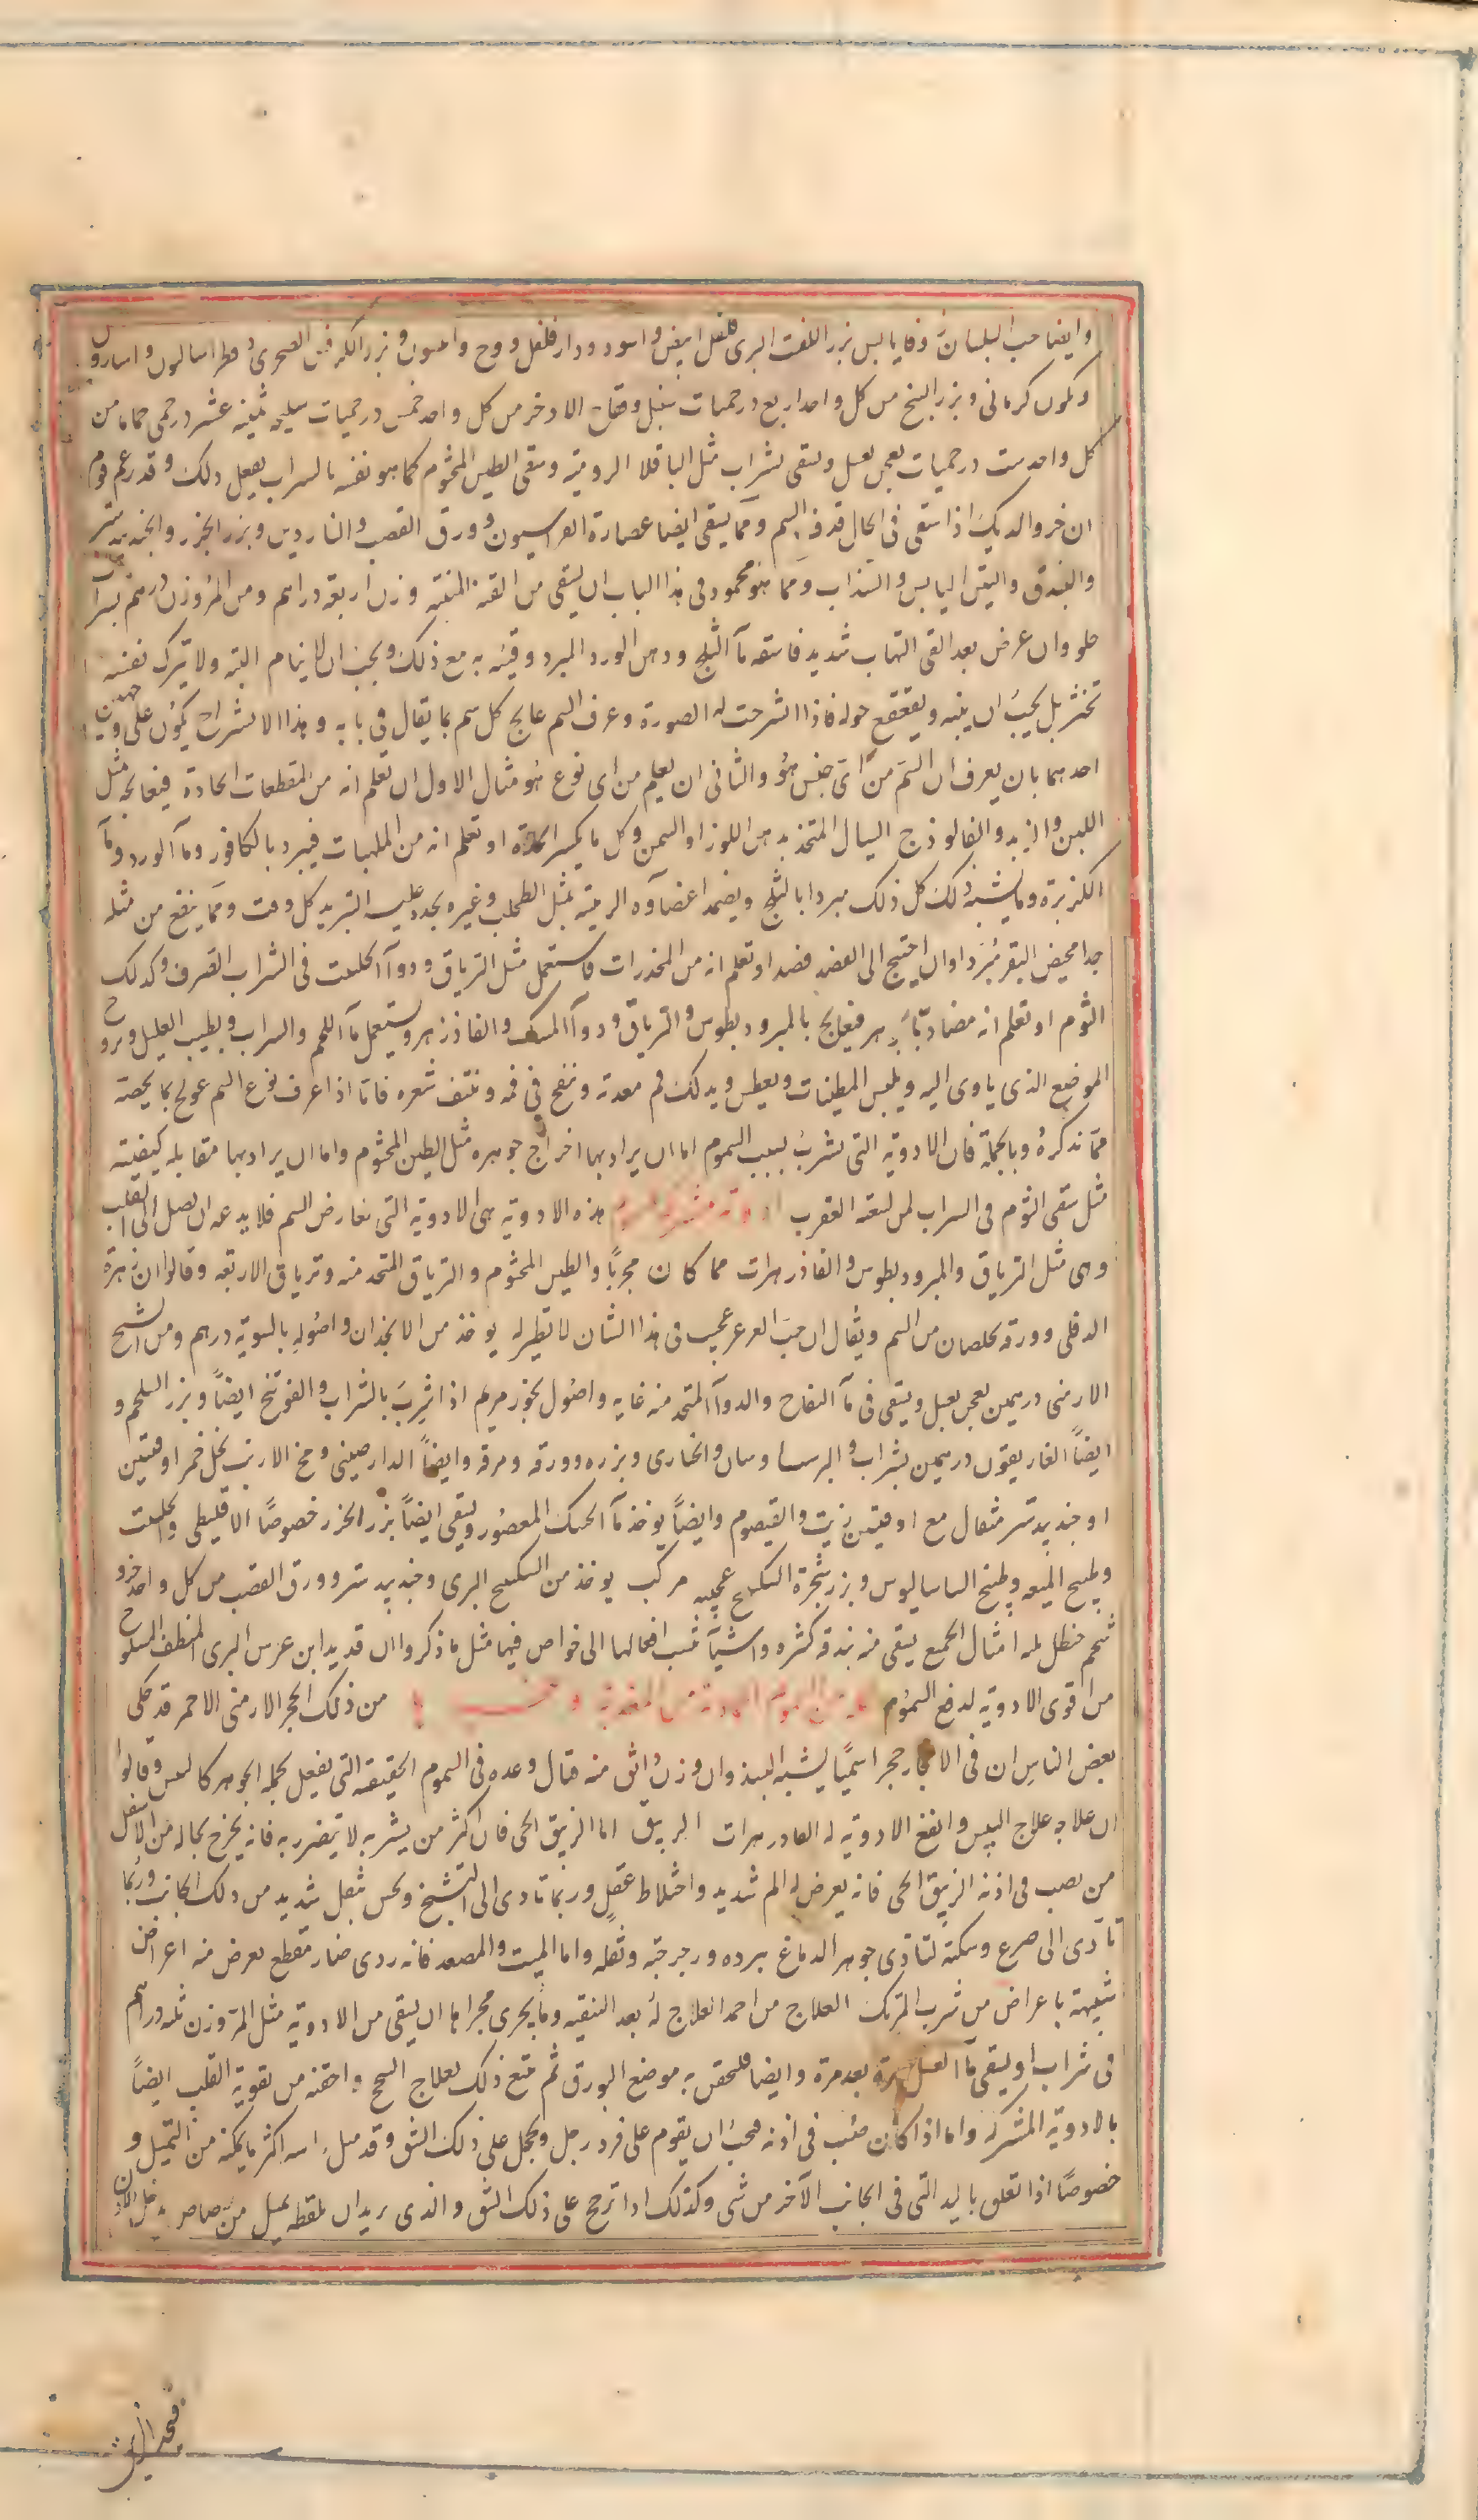 وايضا حب البلسان وفايا يبس بزر اللفت البرى فلفل ابيض واسود ودار فلفل ووج وانيسون وبزر الكرفس الصحرى واساروں
وكمون كرمانى وبزر البنج من كل واحد اربع درخميات سنبل وفقاح الاذخر من كل واحد خمس درخميات سليخه ثمنية عشر درخمى حماما من
كل واحد ست درخميات يعجن بعسل ويسقى بشراب مثل الباقلا الرومية وسقى الطين المختوم كما هو نفسه بالشراب يفعل ذلك وقد زعم قوم
ان خرو الديك اذا سقى فى الحال قذف السم ومما يسقى ايضا عصارة الفراسيون وورق القصب والناردين وبزر الجزر والجندبيدستر
والبندق والتين اليابس والسذاب ومما هو محمود فى هذا الباب ان يسقى من القنة المنقية وزن اربعة دراهم ومن المر وزن درهم بشراب
حلو وان عرض بعد القى التهاب شديد فاسقه مآ الثلج ودهن الورد المبرد وقيئه به مع ذلك ويجب ان لا ينام البته ولا يترك نفسه
تخثر بل يجب ان ينبه ويقعقع حوله فاذا انشرحت له الصورة وعرف السم عالج كل سم بما يقال فى بابه وهذا الانشراح يكون على وجهين
احدهما بان يعرف ان السم من اى جنس هو والثانى ان يعلم من اى نوع هو مثال الاول ان تعلم انه من المقطعات الحادة فيعالجه بمثل
اللبن والزبد والفالوذج السيال المتخذ بدهن اللوز او السمن وكل ما يكسر الحدة او تعلم انه من الملهبات فيبرد بالكافور ومآ الورد ومآ
الكزبرة وما يشبه ذلك كل ذلك مبردا بالثلج ويضمد اعضآوه الرئيسة بمثل الطحلب وغيره يجدد عليه التبريد كل وقت ومما ينفع من مثله
جدا مخيض البقر مبردا وان احتيج الى الفصد فصد او تعلم انه من المخدرات فاستعمل مثل الترياق ودوآ الحلتيت فى الشراب الصرف وكذلك
الثوم او تعلم انه مضاد بجوهر فيعالج بالمثروديطوس والترياق ودوآ المسك والفاذزهر ويستعمل مآ اللحم والشراب ويطيب العليل ويروح
الموضع الذى ياوى اليه ويلبس المطيبات ويعطس ويدلك فم معدته وننفخ فى فمه وننتف شعره فاما اذا عرف نوع السم عولج بما يخصه
مما نذكره وبالجملة فان الادوية التى تشرب لسبب السموم اما ان يراد بها اخراج جوهره مثل الطين المختوم واما ان يراد بها مقابلة كيفيته
مثل سقى الثوم فى الشراب لمن لسعته العقرب هذه الادوية هى الادوية التى تعارض السم فلا يدعه ان يصل الى القلب
وهى مثل الترياق والمثروديطوس والفاذزهرات مما كان مجربًا والطين المختوم والترياق المتخذ منه وترياق الاربعه وقالوا ان زهرة
الدفلى وورقه يخلصان من السم ويقال ان حب العرعر عجيب فى هذا الشان لا نظير له يوخذ من الانجذان واصوله بالسوية درهم ومن الشيح
الارمنى درهمين يعجن بعسل ويسقى فى مآ التفاح والدوآ المتخذ منه غايه واصول بخور مريم اذا شرب بالشراب والفوتنج ايضًا وبزر السلجم و
ايضًا الغاريقون درهمين بشراب والبرسياوشان والخبازى وبزره وورقه ومرقه وايضًا الدارصينى ومخ الارنب بخل خمر اوقيتين
او جندبيدستر مثقال مع اوقيتين زيت والقيصوم وايضًا يوخذ مآ الحسك المعصور ويسقى ايضًا بزر الجزر خصوصًا الاقليطى والحلتيت
وطبيخ الميعه وطبيخ الساساليوس وبزر شجرة السكبينج عجيبه مركب يوخذ من السكبينج البرى وجندبيدستر وورق القصب من كل واحد جزو
شحم حنظل ثلثه امثال الجميع يسقى منه بندقه كثره واشيآ تنسب افعالها الى خواص فيها مثل ما ذكروا ان قديد ابن عرس البرى المنظف السلوخ
من اقوى الادوية لدفع السموم من ذلك الحجر الارمنى الاحمر قد حكى
بعض الناس ان فى الاحجار حجرا سميًا يشبه البسذ وان وزن دانق منه قتال وعده فى السموم الحقيقه التى يفعل بجملة الجوهر كالبيش وقالوا
ان علاجه علاج البيش وانفع الادوية له الفادزهرات الزيبق اما الزيبق الحى فان اكثر من يشربه لا يتضرر به فانه يخرج بحاله من الاسفل
من يصب فى اذنه الزيبق الحى فانه يعرض له الم شديد واختلاط عقل وربما تادى الى التشنج ويحس بثقل شديد من ذلك الجانب وربما
تآدى الى صرع وسكتة لتاذى جوهر الدماغ ببرده ورجرجته وثقله واما الميت والمصعد فانه ردى ضار مقطع يعرض منه اعراض
شبيهة باعراض من شرب المرتك العلاج من احمد العلاج له بعد التنقيه وما يجرى مجراها ان يسقى من الادوية مثل المر وزن ثلثه دراهم
فى شراب او يسقى مآ العسل مرة بعد مرة وايضا فلتحقن به موضع البورق ثم تتبع ذلك بعلاج السحج واحقنه من تقوية القلب ايضًا
بالادوية المشتركه واما اذا كان صب فى اذنه فيجب ان يقوم على فرد رجل ويحجل على ذلك الشق وقد ميل راسه اكثر ما يمكنه من التميل و
خصوصًا اذا تعلق باليد التى فى الجانب الآخر من شى وكذلك اذا ترجح على ذلك الشق والذى يريد ان يلقطه بميل من رصاص يدخل الاذن